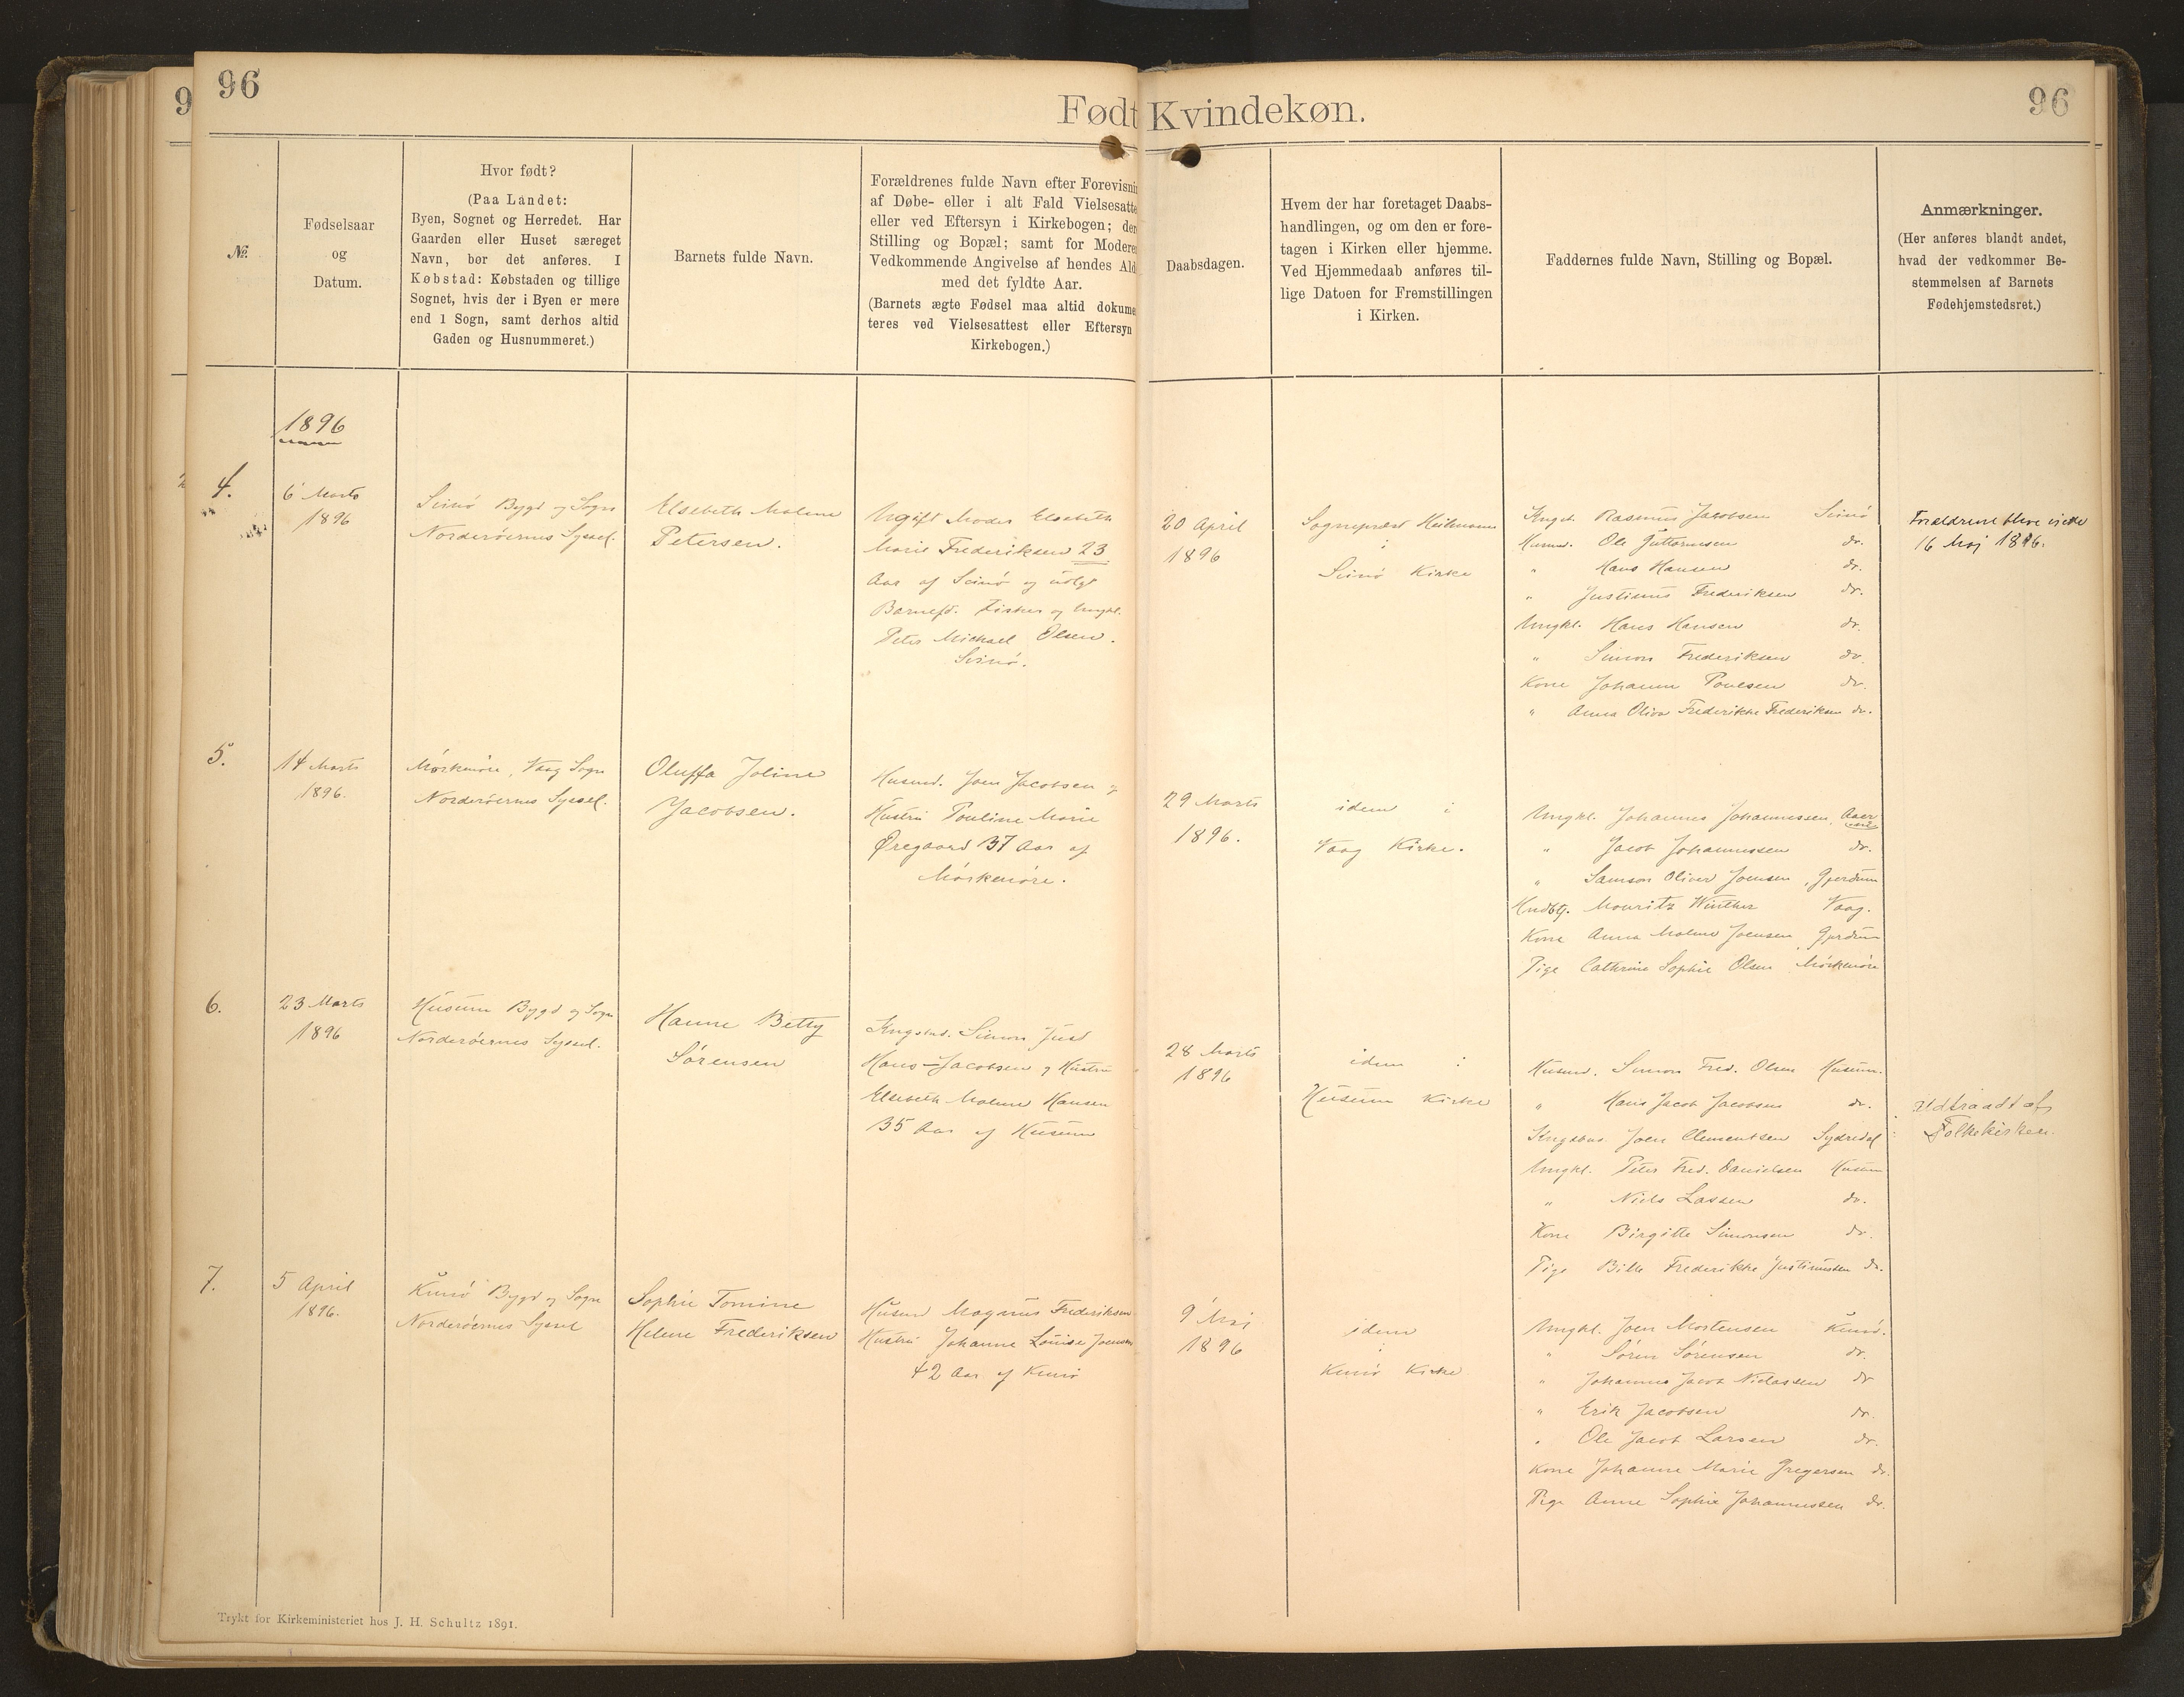 96
Født Kvindekøn.
96
№
Fødselsaar
og
Datum.
Hvor født?
(Paa Landet:
Byen, Sognet og Herredet. Har
Gaarden eller Huset særeget
Navn, bør det anføres. I
Købstad: Købstaden og tillige
Sognet, hvis der i Byen er mere
end 1 Sogn, samt derhos altid
Gaden og Husnummeret.)
Barnets fulde Navn.
Forældrenes fulde Navn efter Forevisni
af Døbe- eller i alt Fald Vielsesatte
eller ved Eftersyn i Kirkebogen; der
Stilling og Bopæl; samt for Modere
Vedkommende Angivelse af hendes Ald
med det fyldte Aar.
(Barnets ægte Fødsel maa altid dokume
teres ved Vielsesattest eller Eftersyn
Kirkebogen.)
Daabsdagen.
Hvem der har foretaget Daabs-
handlingen, og om den er fore-
tagen i Kirken eller hjemme.
Ved Hjemmedaab anføres til-
lige Datoen for Fremstillingen
i Kirken.
Faddernes fulde Navn, Stilling og Bopæl.
Anmærkninger.
(Her anføres blandt andet,
hvad der vedkommer Be-
stemmelsen af Barnets
Fødehjemstedsret.)
1896
4.
6 Marts
1896
Svinø Bygd og Sogn
Norderøernes Syssel.
Elsebeth Malene
Petersen.
Ugift Moder Elsebeth
Marie Frederiksen 23
Aar af Svinø og udlgt
Barnefd. Fisker og Ungkl.
Peter Michael Olsen.
Svinø.
20 April
1896
Sognepræst Heilmann
i
Svinø Kirke
Rasmus Jacobsen Svinø
Husmd. Ole Guttormsen do.
" Hans Hansen do.
" Justinus Frederiksen do.
Ungkl. Hans Hansen do.
" Simon Frederiksen do.
Kone Johanne Poulsen do.
" Anna Olivia Frederikke Frederiksen do.
Forældrene bleve viede
16 Maj 1896.
5.
14 Marts
1896.
Mørkenøre, Vaag Sogn
Norderøernes Syssel.
Oluffa Joline
Jacobsen.
Husmd. Joen Jacobsen og
Hustru Pouline Marie
Øregaard 37 Aar af
Mørkenøre.
29 Marts
1896.
idem i
Vaag Kirke.
Ungkl. Johannes Johannessen,
" Jacob Johannessen do.
" Samson Oliver Joensen, Gjerdum
Hndbtj. Mouritz Winther Vaag.
Kone Anna Malene Joensen, Gjerdum
Pige Cathrine Sophie Olsen Mørkenøre
6.
23 Marts
1896
Husum Bygd og Sogn
Norderøernes Syssel.
Hanne Betty
Sørensen
Simon Just
Hans-Jacobsen og Hustru
Elsebeth Malene Hansen
35 Aar af Husum
28 Marts
1896
idem i
Husum Kirke
Husmd. Simon Fred. Olsen Husum.
" Hans Jacob Jacobsen do.
Joen Clementsen Sydredal
Ungkl. Peter Fred. Danielsen Husum
" Niels Lassen do.
Kone Birgitte Simonsen do.
Pige Bille Frederikke Justinussen do.
Udtraadt af
Folkekirken.
7.
5 April
1896.
Kunø Bygd og Sogn
Norderøernes Syssel
Sophie Tomine
Helene Frederiksen
Husmd Magnus Frederiksen
Hustru Johanne Louise Joensen
42 Aar af Kunø
9 Maj
1896
idem
i
Kunø Kirke
Ungkl. Joen Mortensen Kunø.
" Søren Sørensen do.
" Johannes Jacob Niclassen do
" Erik Jacobsen do.
" Ole Jacob Larsen do.
Kone Johanne Marie Gregersen do.
Pige Anne Sophie Johannessen do.
Trykt for Kirkeministeriet hos J. H. Schultz 1891.